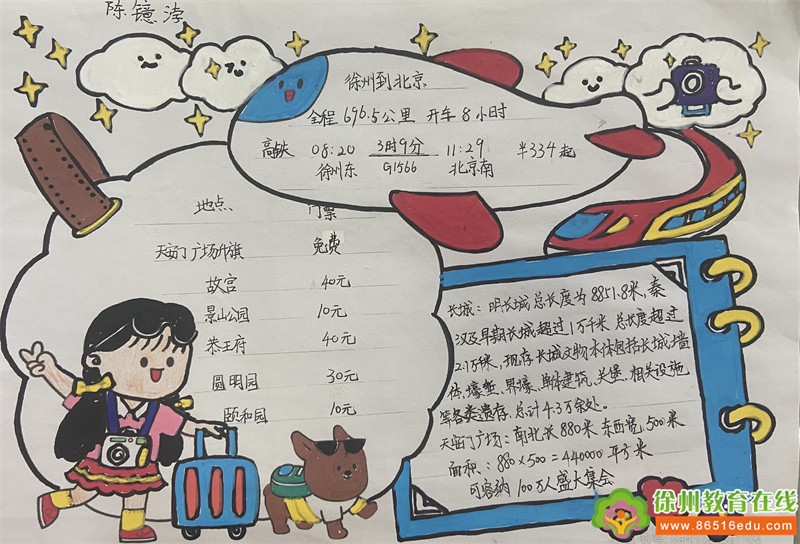 陈镜浡
徐州到北京
全程 696.5公里 开车8小时
高铁 08:20 3时9分 11:29 半334起
徐州东 G1566 北京南
地点 门票
天安门广场升旗 免费
故宫 40元
景山公园 10元
恭王府 40元
圆明园 30元
颐和园 10元
长城：明长城总长度为8851.8米，秦
汉及早期长城超过1万千米 总长度超过
2.1万千米，现存长城文物本体包括长城墙
体、壕堑、界壕、单体建筑、关堡、相关设施
等各类遗存，总计4.3万余处。
天安门广场：南北长880米 东西宽500米
面积：880×500=440000平方米
可容纳100万人盛大集会
徐州教育在线
www.86516edu.com